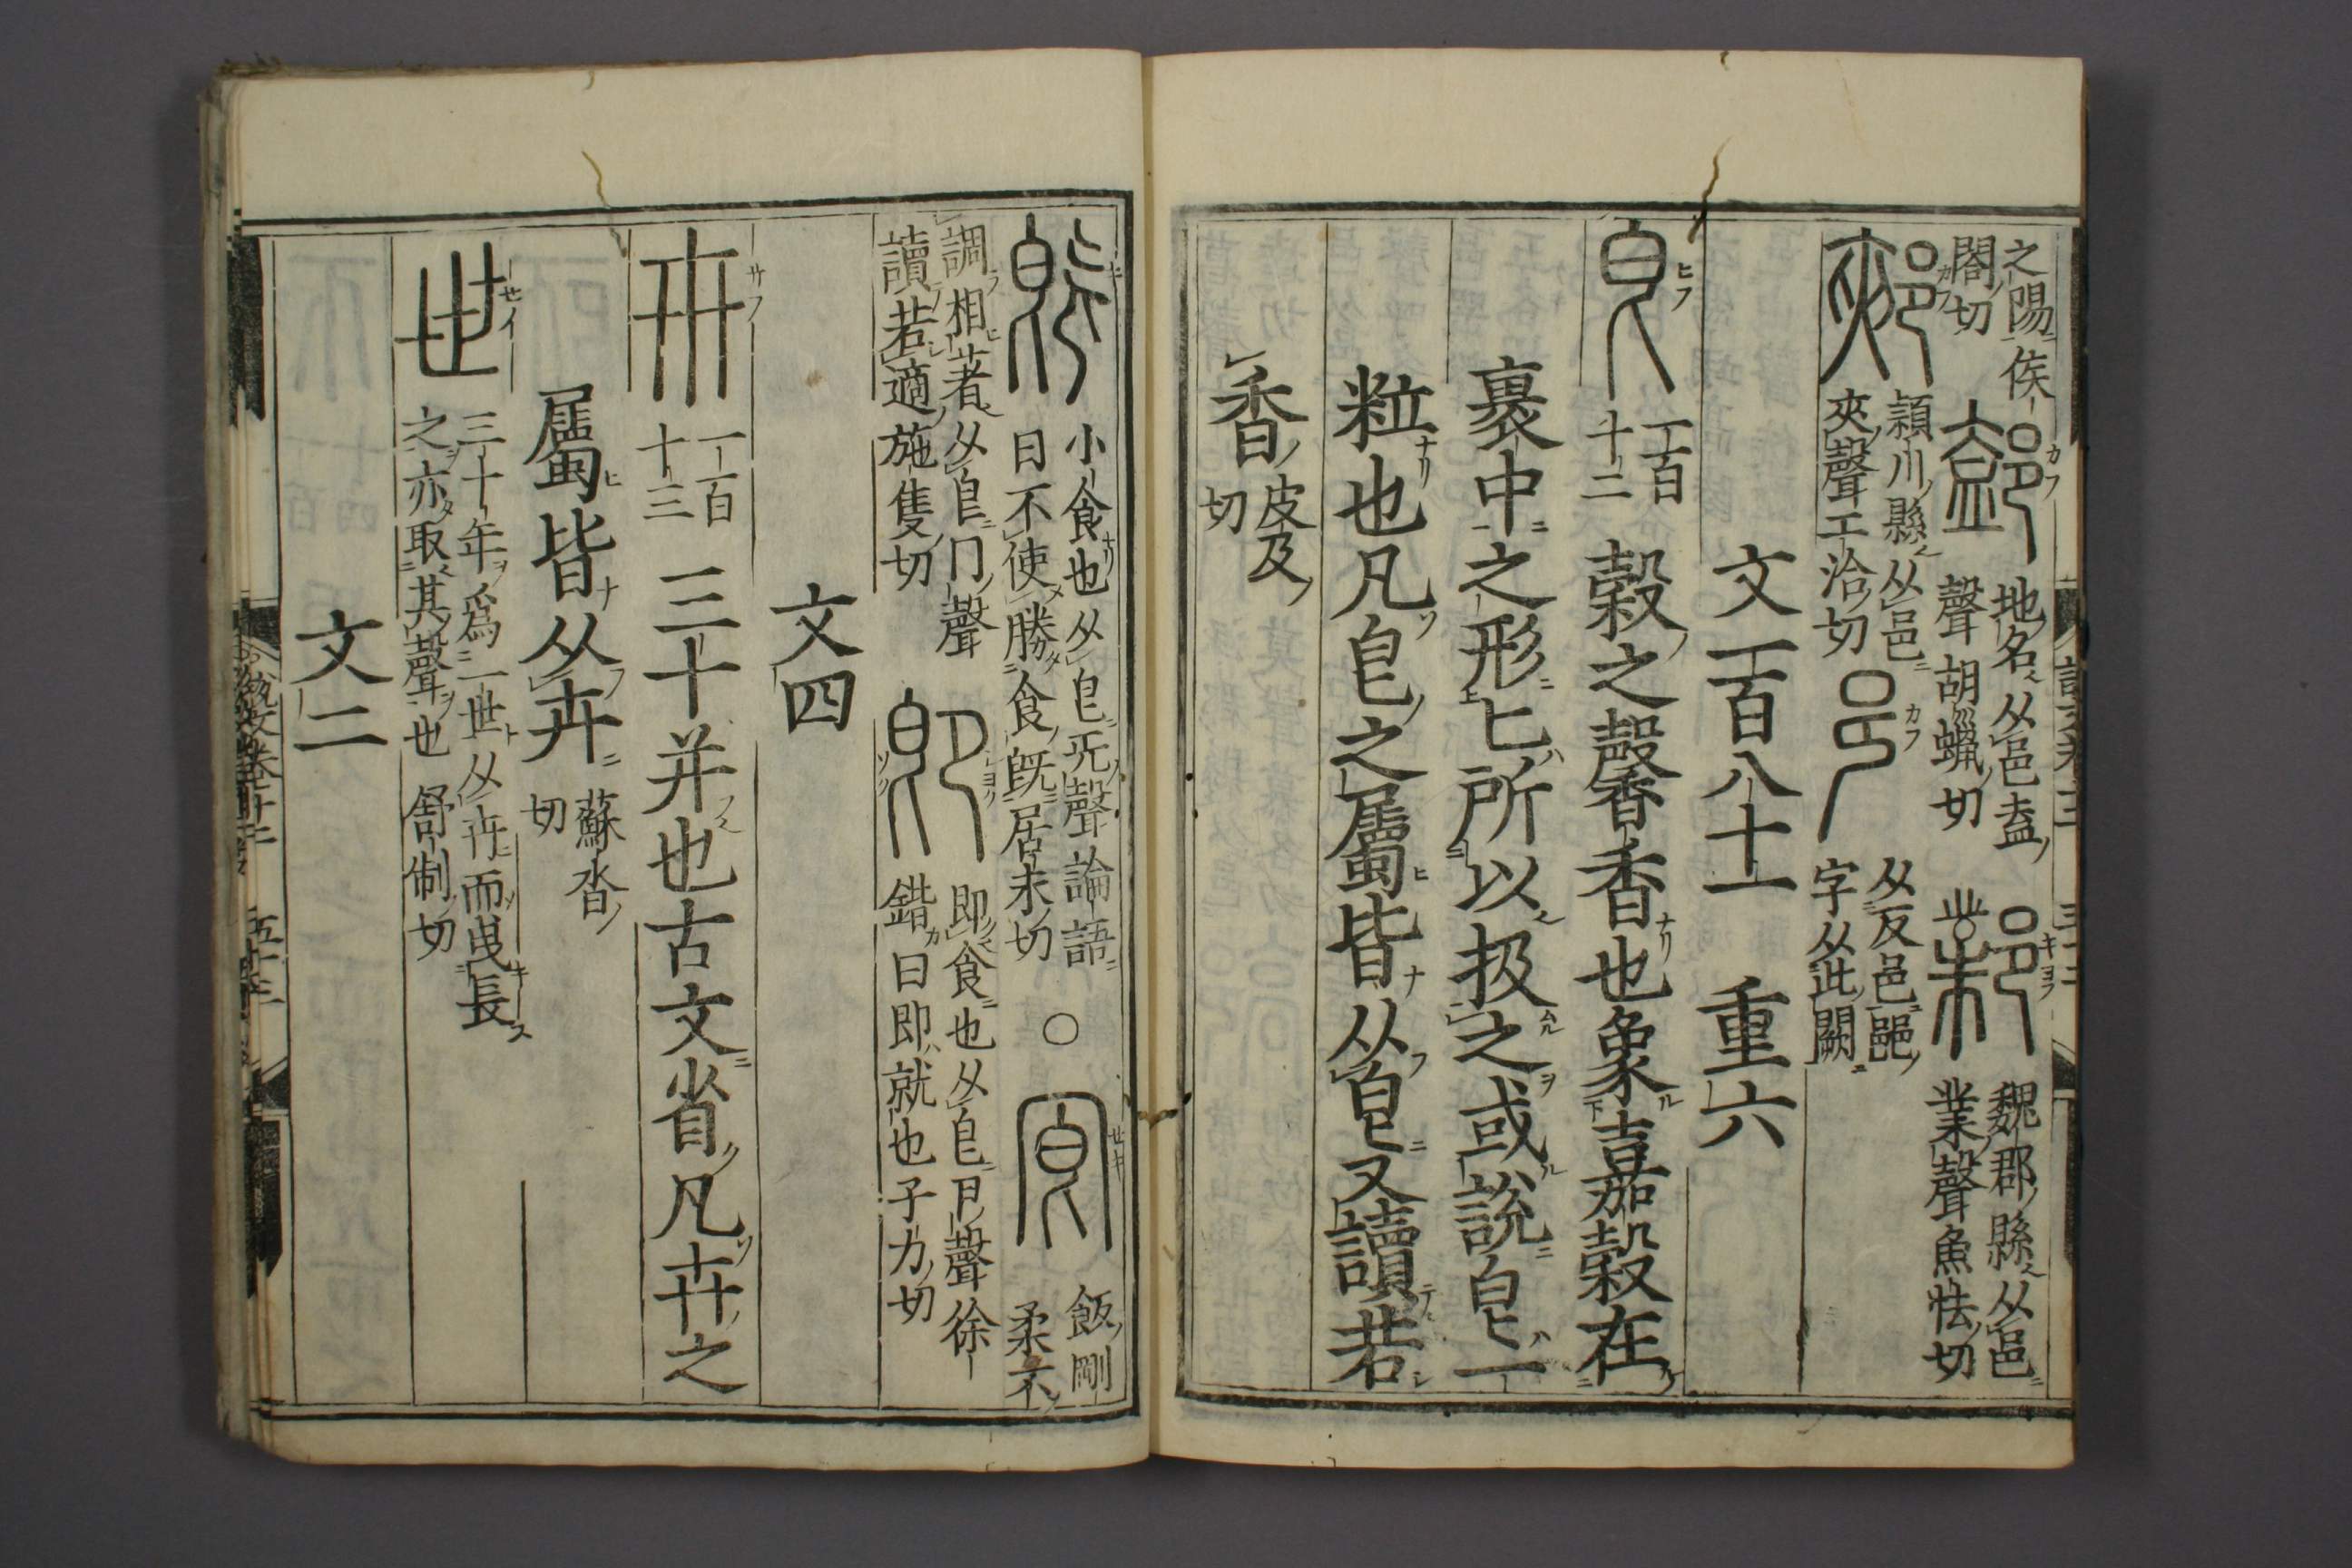 之陽侯
閤切
䣡 地名从邑盍
聲胡蠟切
鄴 魏郡縣从邑
業聲魚怯切
郟 潁川縣从邑
夾聲工洽切
从反邑𨛜
字从此闕
文一百八十一 重六
皀 一百
十二
穀之馨香也象嘉穀在
裹中之形匕所以扱之或說皀一
粒也凡皀之屬皆从皀又讀若
香 皮及
切
旣 小食也从皀旡聲論語
曰不使勝食旣居未切
○
冟 飯剛
柔不
調相著从皀冂聲
讀若適施隻切
卽 即食也从皀卪聲徐
鍇曰即就也子力切
文四
卅 一百
十三
三十并也古文省凡卉之
屬皆从卉 蘇沓
切
世 三十年爲一世从卉而曳長
之亦取其聲也 舒制切
文二